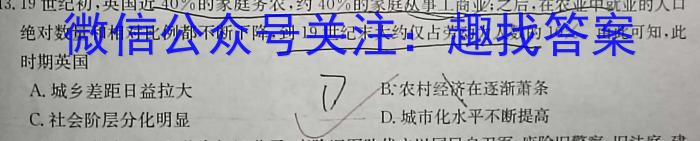 13.19世纪初,英国近40%的家庭务农,约40%的家庭从事工商业;之后,在农业中就业的人口
绝对数 和相对比例都不断下降,到19世纪末大约仅占劳 人 数的 可知,此
微信公众号关注:趣找答案
时期英国
A.城乡差距日益拉大
B.农村经济在逐渐萧条
C.社会阶层分化明显
D.城市化水平不断提高
D